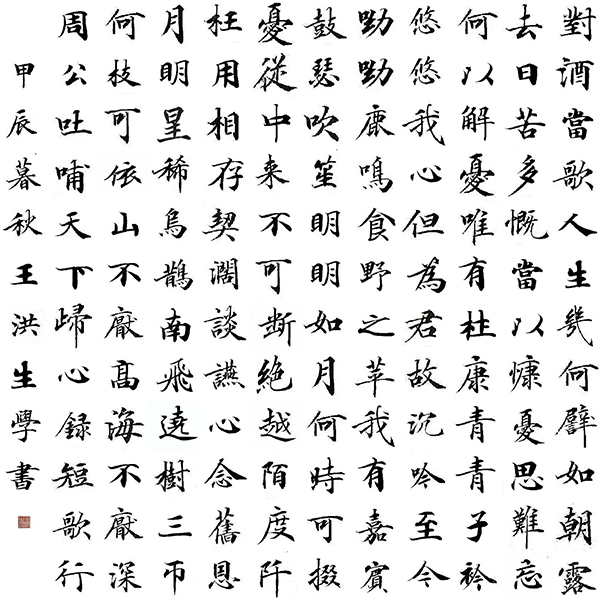 對酒當歌人生幾何譬如朝露
去日苦多慨當以慷憂思難忘
何以解憂唯有杜康青青子衿
悠悠我心但為君故沉吟至今
呦呦鹿鳴食野之苹我有嘉賓
鼓瑟吹笙明明如月何時可掇
憂從中来不可断絶越陌度阡
枉用相存契濶談讌心念舊恩
月明星稀烏鵲南飛遶樹三帀
何枝可依山不厭高海不厭深
周公吐哺天下歸心録短歌行
甲辰暮秋王洪生學書